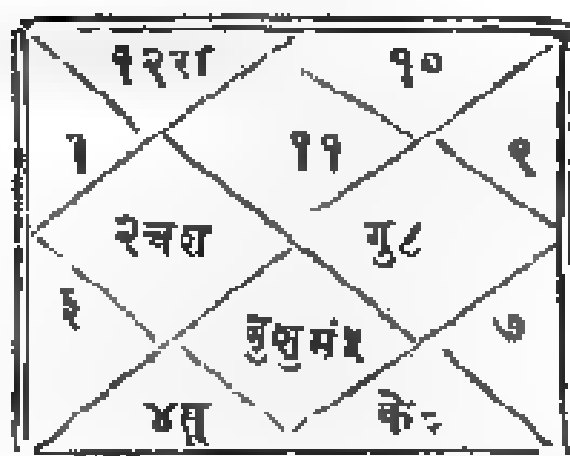 १२रा १०
१ ११ ९
२चश गु८
३ बुशुमं५ ७
४सू के